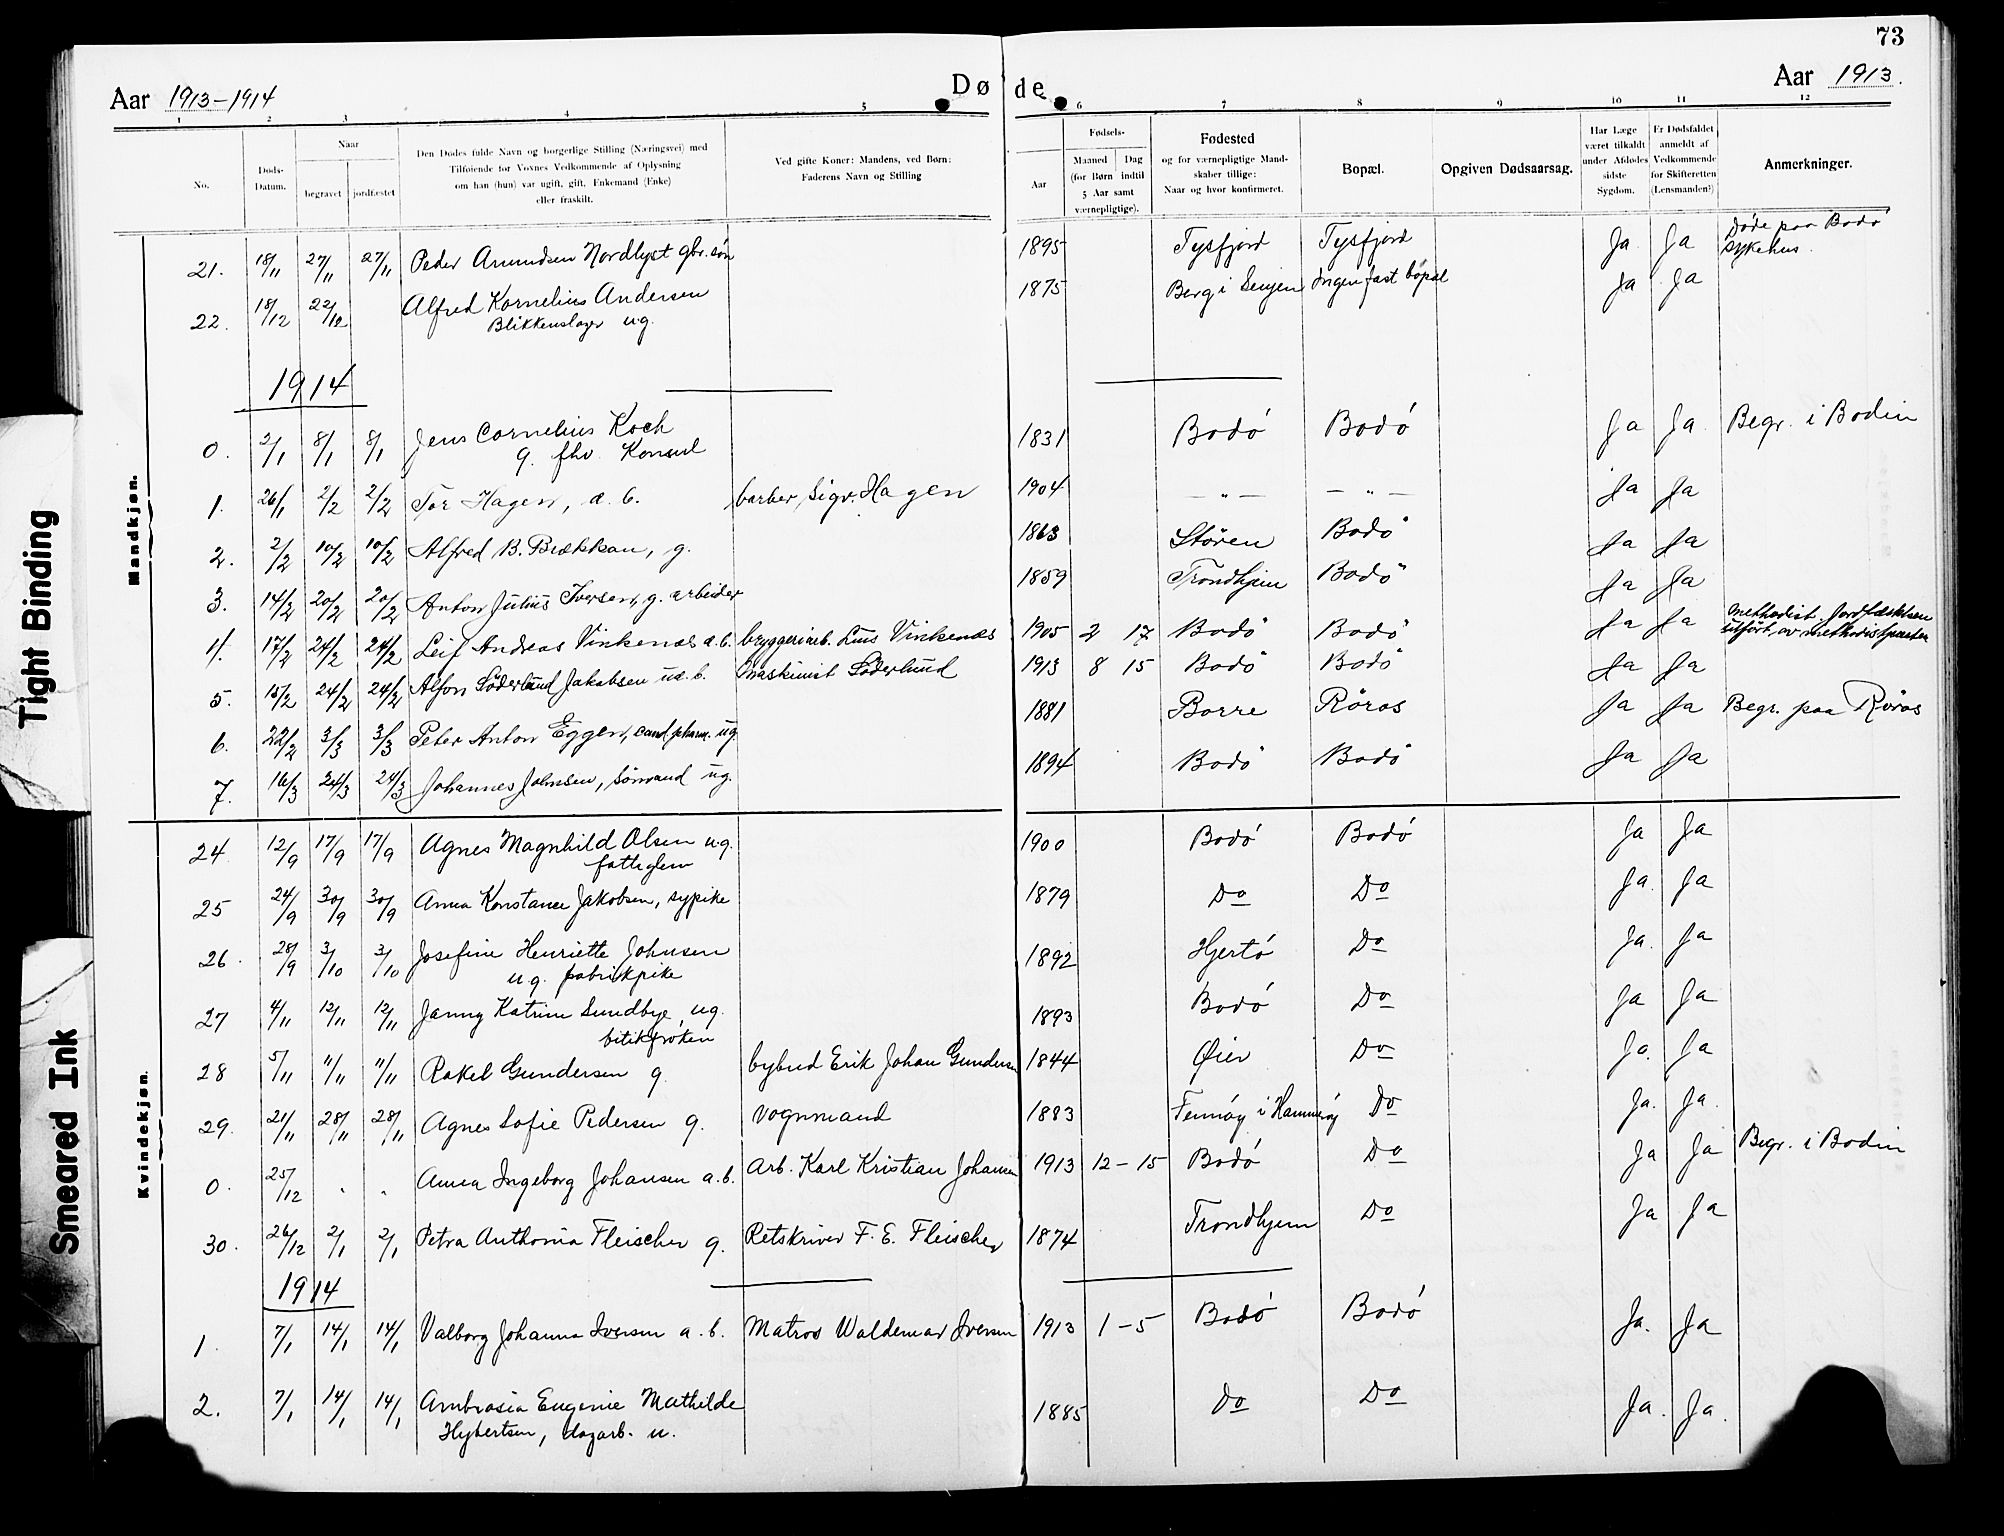 73
Aar 1913-1914
Døde
Aar 1913.
1 2 3 4 5 6 7 8 9 10 11 12
No.
Døds-
Datum.
Naar
begravet jordfæstet
Den Dødes fulde Navn og borgerlige Stilling (Næringsvei) med
Tilføiende for Voxnes Vedkommende af Oplysning
om han (hun) var ugift, gift, Enkemand (Enke)
eller fraskilt.
Ved gifte Koner: Mandens, ved Børn:
Faderens Navn og Stilling
Fødsels-
Aar
Maaned Dag
(for Børn indtil
5 Aar samt
værnepligtige).
Fødested
og for værnepligtige Mand-
skaber tillige:
Naar og hvor konfirmeret.
Bopæl.
Opgiven Dødsaarsag.
Har Læge
været tilkaldt
under Afdødes
sidste
Sygdom.
Er Dødsfaldet
anmeldt af
Vedkommende
for Skifteretten
(Lensmanden?)
Anmerkninger.
Mandkjøn.
21. 18/11 27/11 27/11 Peder Amundsen Nordlyst gbr. søn 1895 Tysfjord Tysfjord Ja Ja Døde paa Bodø
sykehus.
22. 18/12 22/12 Alfred Kornelius Andersen 1875 Berg i Senjen Ingen fast bopæl Ja Ja
Blikkenslager ug.
1914
0. 2/1 8/1 8/1 Jens Cornelius Koch 1831 Bodó Bodó Ja Ja Begr. i Bodin
g. fhv. Konsul
1. 26/1 2/2 2/2 Tor Hagen, æ. b. barber Sigv. Hagen 1904 — „ — — „ — Ja Ja
2. 2/2 10/2 10/2 Alfred B. Brækkan, g. 1863 Støren Bodö Ja Ja
3. 14/2 20/2 20/2 Anton Julius Iversen, g. arbeider 1859 Trondhjem Bodö Ja Ja
4. 17/2 24/2 24/2 Leif Andreas Vinkenæs æ. b. bryggeriarb. Vinkenæs 1905 2 17 Bodö Bodö Ja Ja methodist. Jordfæstelsen
utført av methodistpræsten
5. 15/2 24/2 24/2 Alfon Söderlund Jakobsen uæ. b. Maskinist Söderlund 1913 8 15 Bodö Bodö Ja Ja
6. 22/2 3/3 3/3 Peter Anton Eggen, cand. pharm. ug. 1881 Borre Röros Ja Ja Begr. paa Röros
7. 16/3 24/3 24/3 Johannes Johnsen, Sömand ug. 1894 Bodö Bodö Ja Ja
Kvindekjøn.
24 12/9 17/9 17/9 Agnes Magnhild Olsen ug. 1900 Bodó Bodó Ja Ja
fattiglem
25 24/9 30/9 30/9 Anna Konstance Jakobsen, sypike 1879 Do Do Ja. Ja
26. 28/9 3/10 3/10 Josefine Henriette Johnsen 1892 Hjertó Do Ja. Ja
ug. fabrikpike
27 4/11 12/11 12/11 Janny Katrine Sundbye, ug. 1893 Bodó Do Ja Ja
butikfróken
28 5/11 11/11 11/11 Rakel Gundersen g. bybud Erik Johan Gundersen 1844 Øier Do Ja. Ja
29. 21/11 28/11 28/11 Agnes Sofie Pedersen g. Vognmand 1883 i Hammerøy Do Ja. Ja.
0. 25/12 " " Anna Ingeborg Johansen a. b. Arb. Karl Kristian Johansen 1913 12-15 Bodó Do Ja Ja Begr. i Bodin
30. 26/12 2/1 2/1 Petra Anthonia Fleischer g. Retskriver F. E. Fleischer 1874 Trondhjem Do Ja Ja
1914
1. 7/1 14/1 14/1 Valborg Johanna Iversen a. b. Matros Waldemar Iversen 1913 1-5 Bodó Bodó Ja. Ja
2. 7/1 14/1 14/1 Ambrosia Eugenie Mathilde 1885 Do Do Ja. Ja.
Hybertsen, dagarb. u.
Tight Binding
Smeared Ink